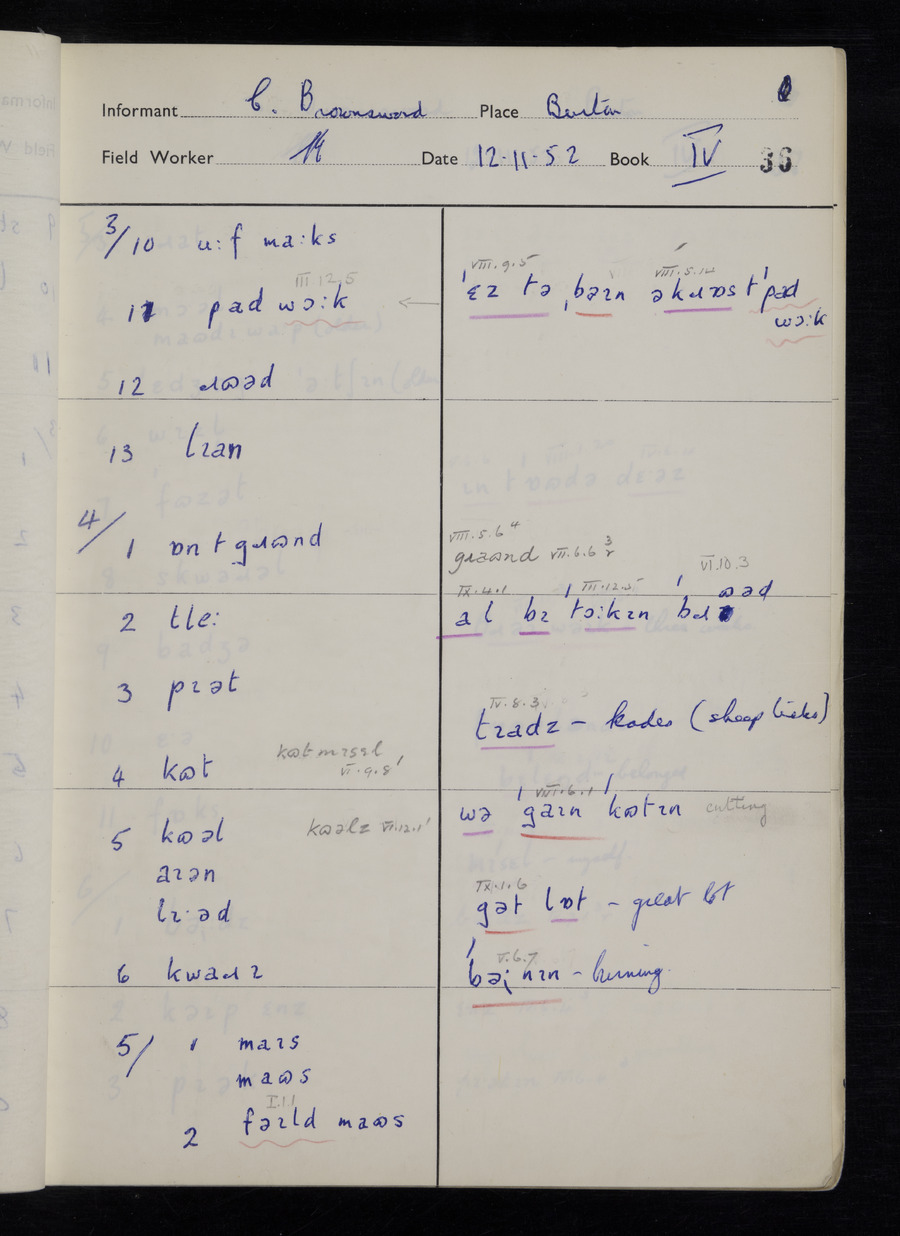 Informant C. Brownsword Place Burton
Field Worker Date 12·11·52 Book IV 36
3/10 ɹɪ:f ma:ks
11 pad wɔ:k III 12.5
12 ɹɷəd
13 lɪan
4/1 ɒn t gɹaɷnd
2 tle:
3 pɪət
4 kɷt kɷt mɪsɛl VI.9.8
5 kɷəl kɷəlz VII.12.1
aɪən
lɪ·əd
6 kwaɹɪ
5/1 maɪs
maɷs
I.1.1
2 fəɪld maɷs
VIII.9.5 VIII.5.12
ˈɛz tə ˌbəɪn əkɹɒs t ˈpad
wɔ:k
VIII.5.6 4
gɹaɷnd VII.6.6 3
IX.4.1 III.12.5 VI.10.3
al bɪ ˈtɔ:kɪn ˈbɹɷəd
IV.8.3
tɪadz – kades (sheep ticks)
VIII.6.1
wə ˈgaɪn ˈkɷtɪn cutting
IX.1.6
gət lɒt – great lot
V.6.7
ˈbə:nɪn – burning.